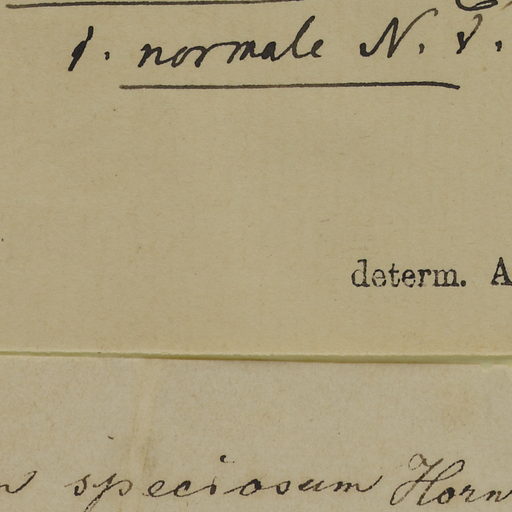 f. normale N. P.
determ. A
speciosum Horn